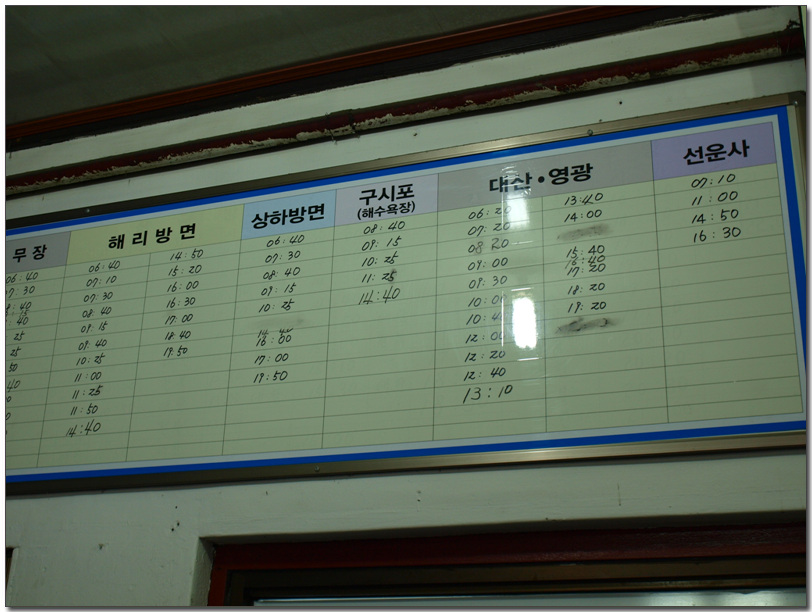 무장
해리방면
상하방면
구시포
(해수욕장)
대산·영광
선운사
06:40
7:30
06:40
07:10
07:30
08:40
09:15
09:40
10:25
11:00
11:25
11:50
14:40
14:50
15:20
16:00
16:30
17:00
18:40
19:50
06:40
07:30
08:40
09:15
10:25
16:00
17:00
19:50
08:40
09:15
10:25
11:25
14:40
06:20
07:20
08:20
09:00
09:30
10:00
10:40
12:00
12:20
12:40
13:10
13:40
14:00
15:40
16:40
17:20
18:20
19:20
07:10
11:00
14:50
16:30